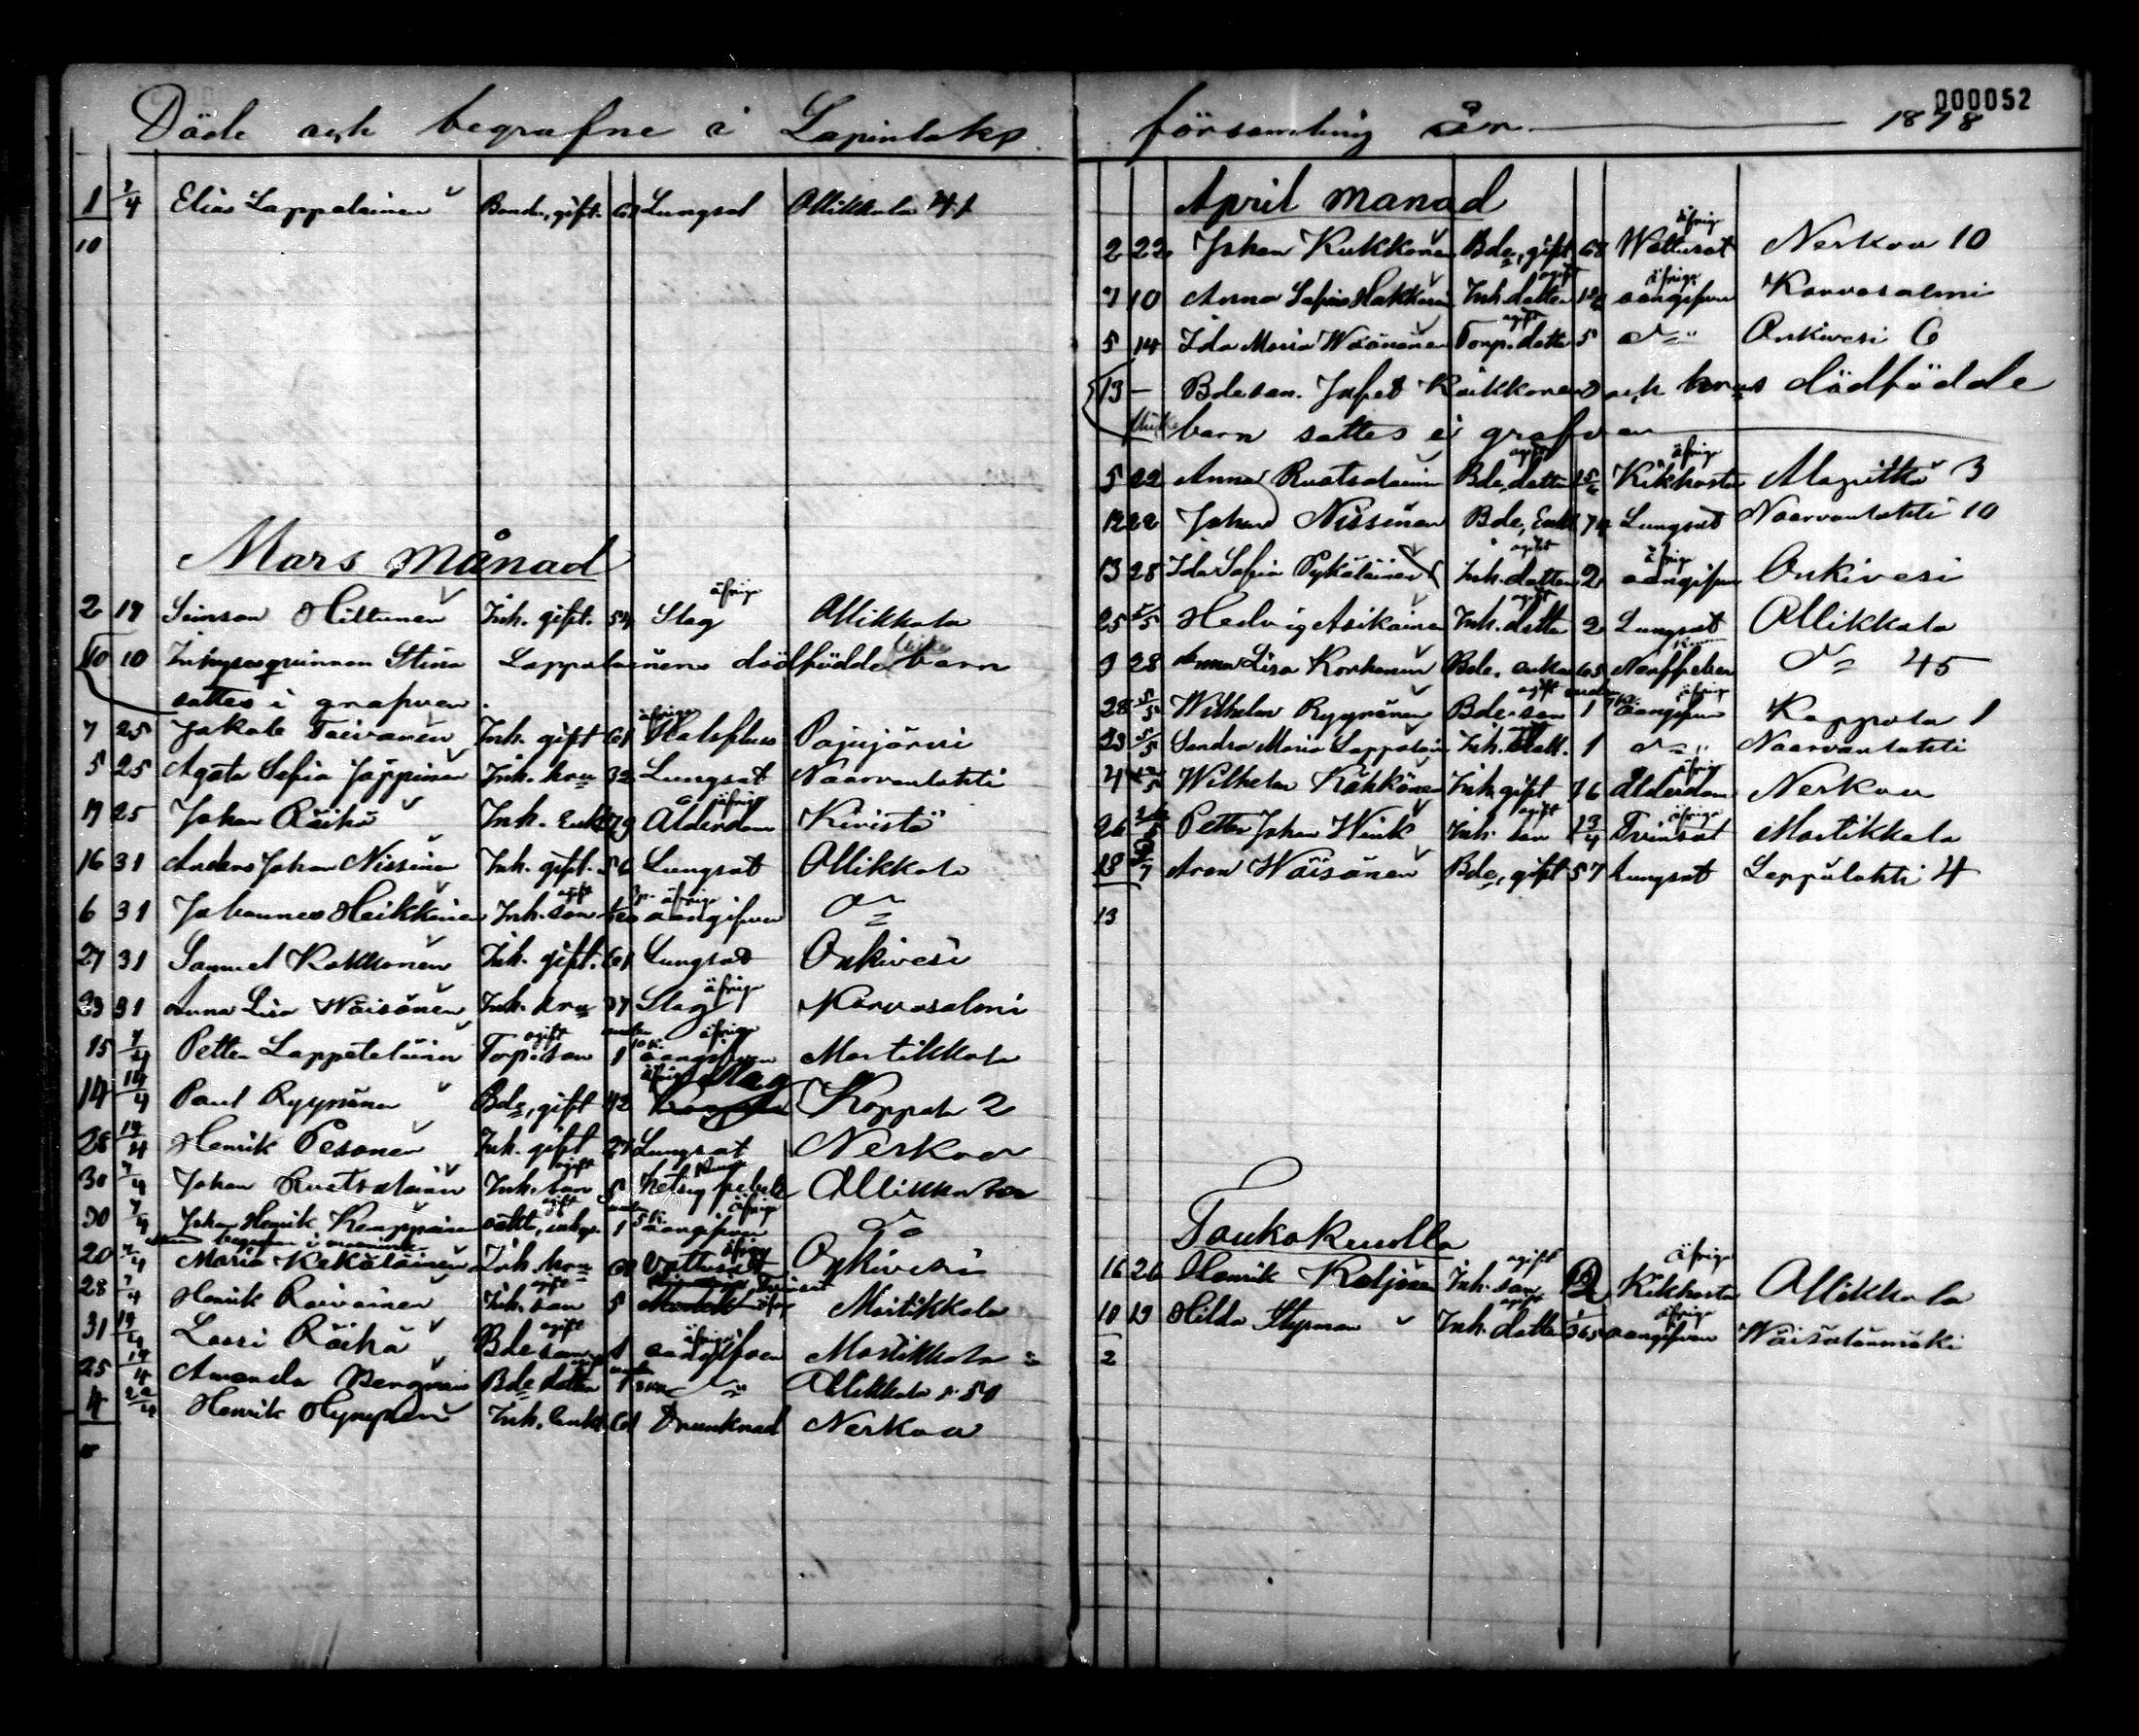 000052
Döde och begrafne i Lapinlaks församling år 1878
1 7/4 Elias Lappalainen Bonde, gift. Lungsot Ollikkala 41
10
Mars månad
2 17 Simson Hiltunen Inh. gift. 54 Slag äfrige Ollikkala
10 10 Inhysesqvinnan Stina Lappalainens dödfödde barn
sattes i grafven.
7 25 Jakob Taivanen Inh. gift 61 Halsfluss äfrige Pajujärvi
5 25 Agata Sofia Jäppinen Inh. hru 32 Lungsot Naarvanlahti
17 25 Johan Räihä Inh. Enkl. 79 Ålderdom äfrige Kivistö
16 31 Anders Johan Nissinen Inh. gift. 56 Lungsot Ollikkala
6 31 Johannes Heikkinen Inh. son ogift oangifven äfrige do
27 31 Samuel Kokkonen Inh. gift. 61 Lungsot Onkivesi
31 Anna Lisa Wäisänen Inh. hru 37 Slag äfrige Karvasalmi
15 7/4 Petter Lappeteläinen Torp. son ogift 1 oangifven äfrige Martikkala
14 14/4 Paul Ryynänen Bde, gift 42 äfrige Slag Koppola 2
28 14/4 Henrik Pesonen Inh. gift 27 Lungsot Nerkoo
30 7/4 Johan Ruotsalainen Inh. son ogift 5 hetsig feber Ollikkala
30 7/4 Johan Henrik Kemppainen ogift 1 oangifven äfrige do
20 7/4 Maria Kekäläinen Inh. hru Vattusot äfrige Onkivesi
28 7/4 Henrik Roivainen Inh. son ogift 5 Tvinsot äfrige Martikkala
31 14/4 Lassi Räihä Bde son ogift 1 oangifven äfrige Martikkala
25 14/4 Amanda Bde dotter ogift 1 do Ollikkala 50
4 22/4 Henrik Hynynen Inh. Enkl. 61 Drunknad Nerkoo
April månad
2 22 Johan Kukkonen Bde, gift 68 Wattusot äfrige Nerkoo 10
7 10 Anna Sofia Hakkarainen Inh. dotter ogift oangifven äfrige Karvasalmi
5 14 Ida Maria Wäänänen Torp. dotter ogift 5 do Onkivesi 6
13 — Bdeson. Jafet Kukkonens och hrus dödfödde
barn sattes i grafven
5 22 Anna Ruotsalainen Bde, dotter ogift Kikhosta äfrige Alapitkä 3
12 22 Johan Nissinen Bde, Enkl 74 Lungsot Naarvanlahti 10
13 28 Ida Sofia Pykäläinen Inh. dotter ogift 2 oangifven äfrige Onkivesi
25 5/5 Hedvig Asikainen Inh. dotter ogift 2 Lungsot Ollikkala
9 28 Anna Lisa Korhonen Bde. enka 65 Nerffeber do 45
28 5/5 Wilhelm Ryynänen Bde son ogift 1 oangifven äfrige Koppola 1
23 5/5 Sandra Maria Lappalainen Inh. dott. 1 do Naarvanlahti
4 12/5 Wilhelm Kähkönen Inh. gift 76 Ålderdom äfrige Nerkoo
26 26/5 Petter Johan Wink Inh. son ogift 13/4 Tvinsot äfrige Martikkala
18 /7 Aron Wäisänen Bde, gift 57 Lungsot Leppälahti 4
13
Toukokuulla
16 26 Henrik Keljonen Inh. son ogift 2 Kikhosta äfrige Ollikkala
10 19 Hilda Styrman Inh. dotter ogift oangifven äfrige Wäisälänmäki
2